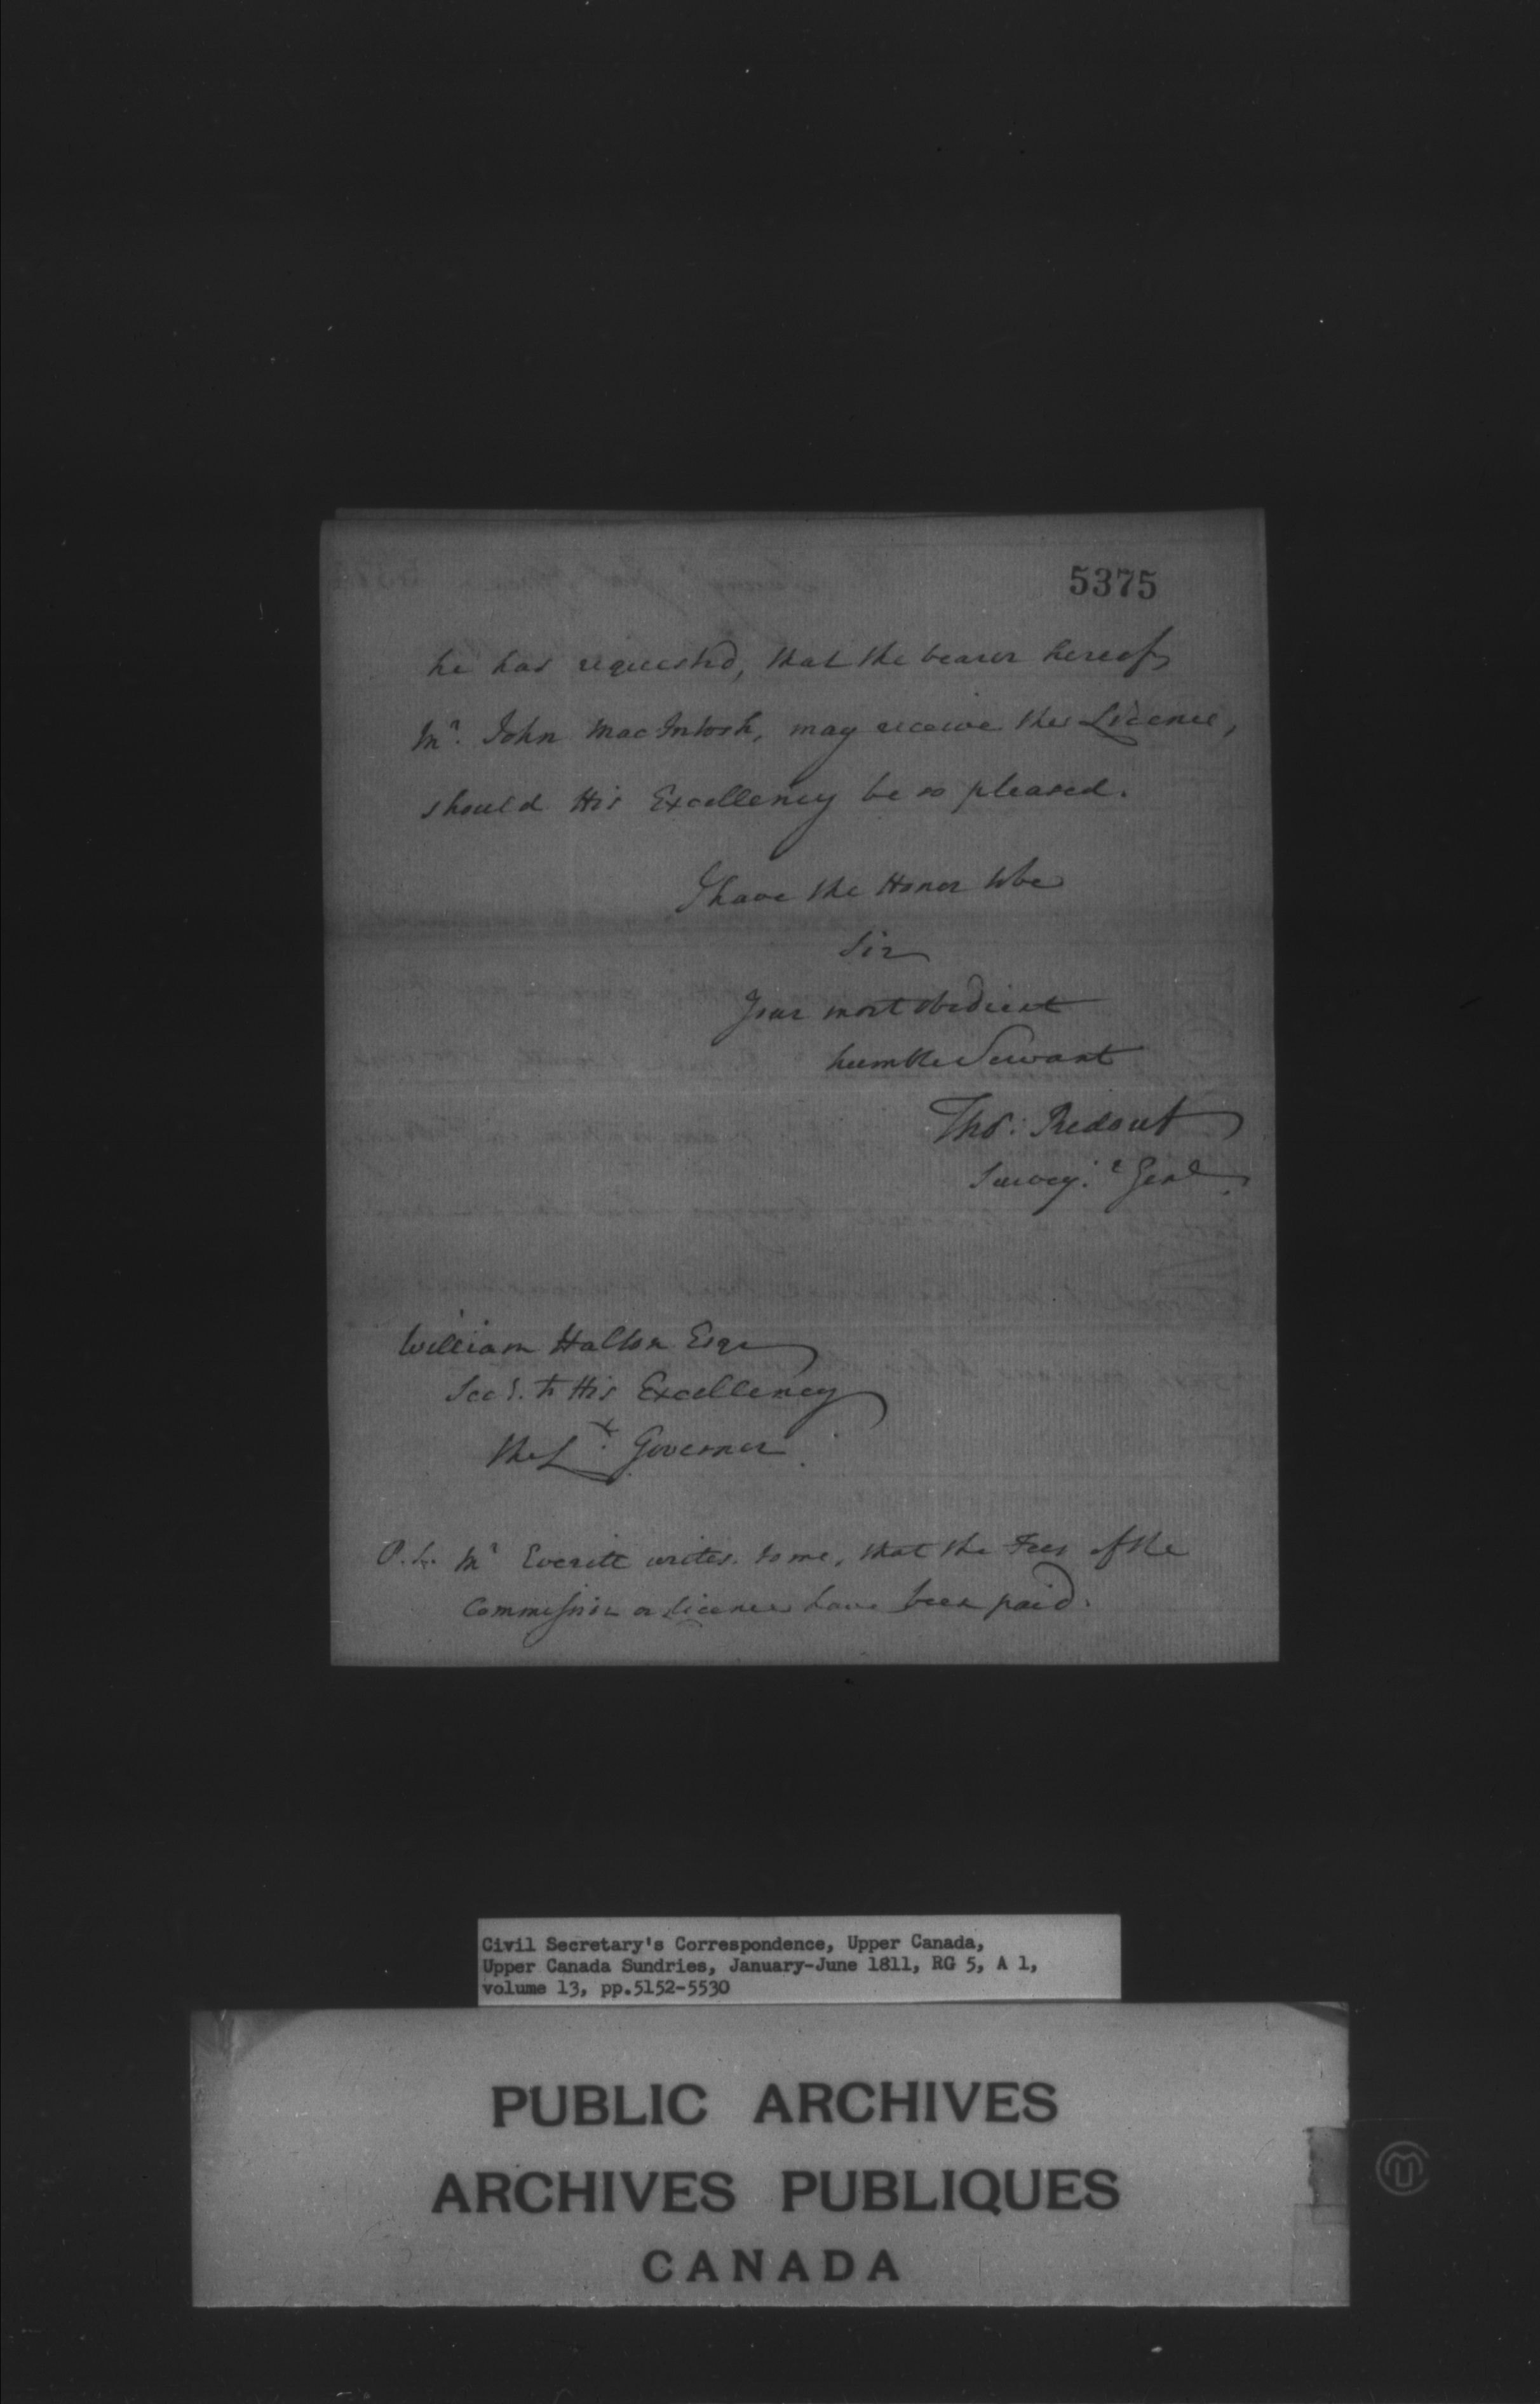 5375
he has requested, that the bearer hereof
Mr. John MacIntosh, may receive the Licence,
should His Excellency be so pleased.
I have the Honor to be
Sir
Your most obedient
humble Servant
Thos: Ridout
Survey.r Genl
William Halton Esqr
Secy. to His Excellency
the Lt. Governor
P.S. Mr Everitt writes to me, that the Fees of the
Commission or licence have been paid.
Civil Secretary's Correspondence, Upper Canada,
Upper Canada Sundries, January-June 1811, RG 5, A 1,
volume 13, pp.5152-5530
PUBLIC ARCHIVES
ARCHIVES PUBLIQUES
CANADA